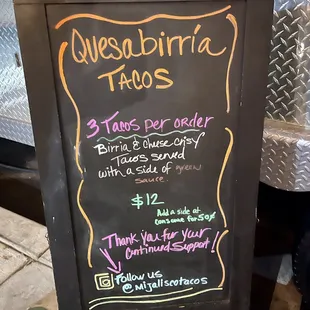 Quesabirria
Tacos
3 Tacos per order
Birria & Cheese Crisy
Tacos served
with a side of green
sauce.
$12
Add a side of
consome for 50¢
Thank you for your
Continued Support!
Follow us
@mijaliscotacos